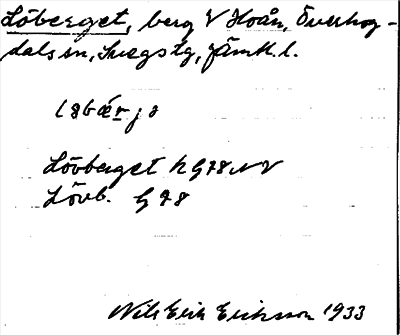 Löberget, berg V Hoån, Överhog-
dals sn, Svegs tg, Jämtl. l.
Løbærjə
Lövberget h G78 NV
Lövb. G 78
Nils Erik Eriksson 1933